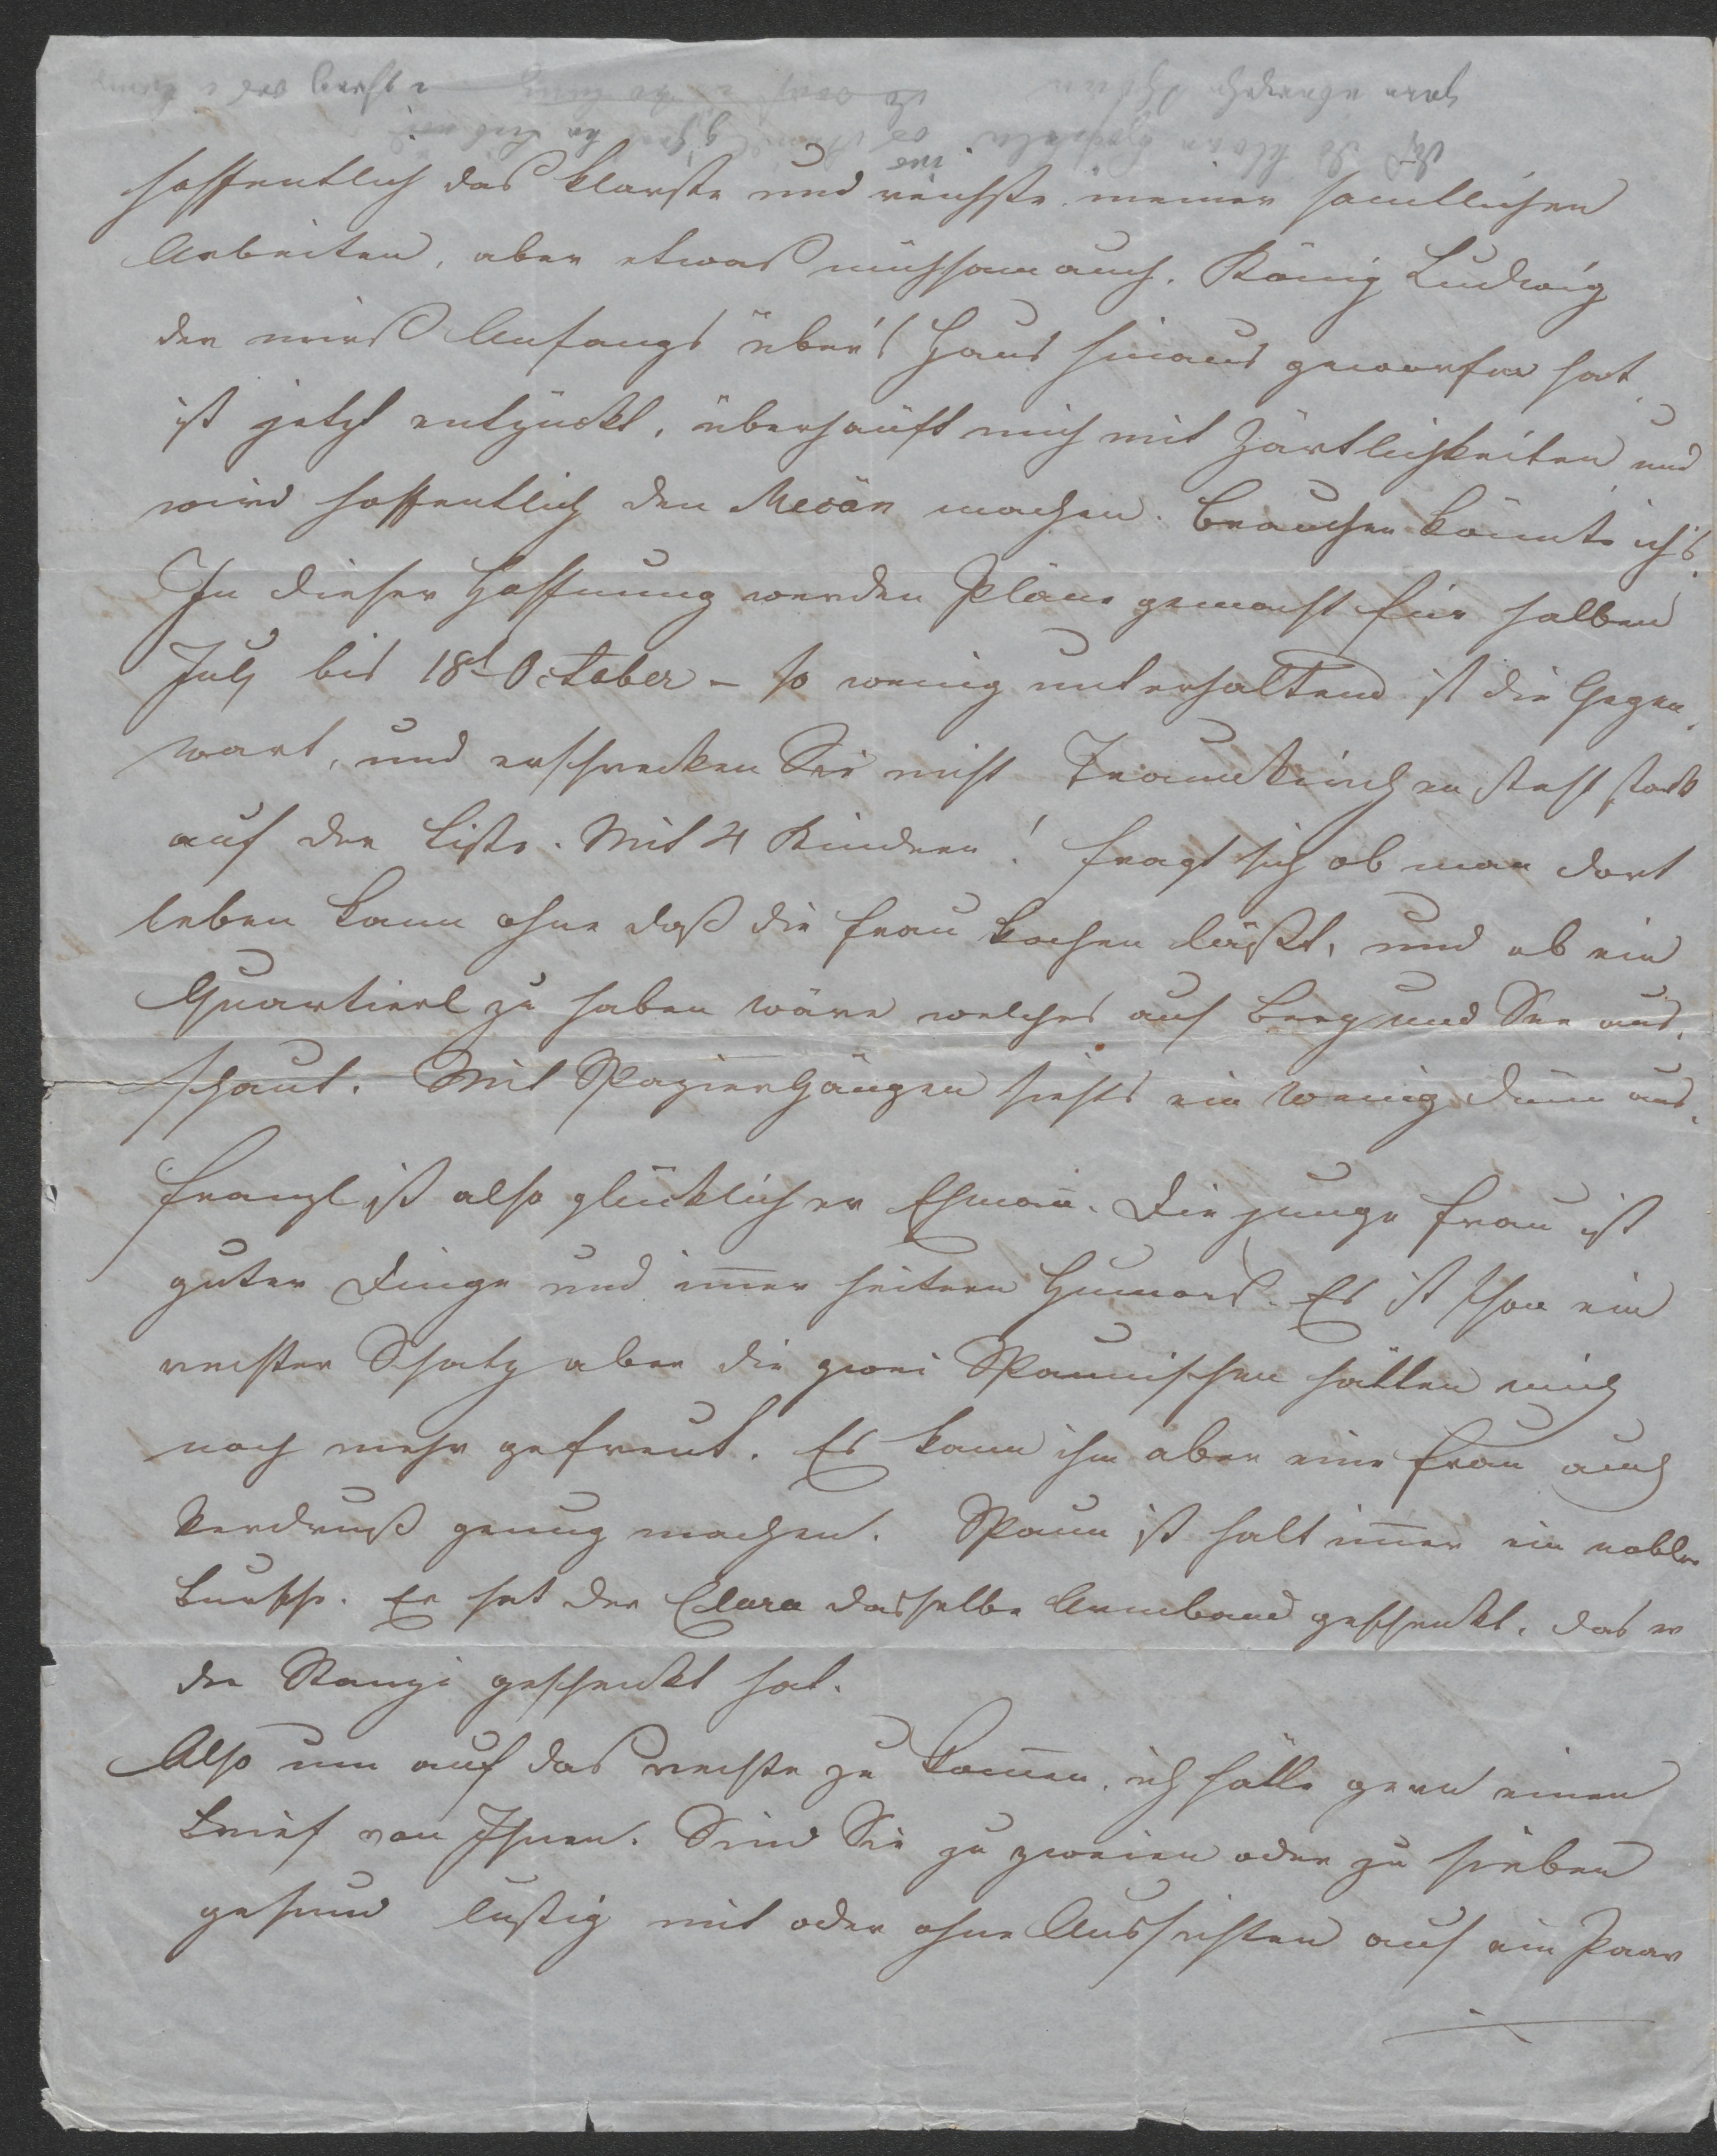 hoffentlich das klarste und reichste meiner samtlichen
Arbeiten, aber etwas mühsam auch. König Ludwig
der mirs Anfangs über's Haus hinaus geworfen hat
ist jetzt entzückt, überhäuft mich mit Zärtlichkeiten und
wird hoffentlich den Mecän machen. Brauchen könnte ich's.
In dieser Hoffnung werden Pläne gemacht für halben
July bis 18t October – so wenig unterhaltend ist die Gegen,
wart, und erschrecken Sie nicht Traunkirchen steht stark
auf der Liste. Mit 4 Kindern! fragt sich ob man dort
leben kann ohne daß die Frau kochen läßt, und ob ein
Quartierl zu haben wäre welches auf Berg und See aus,
schaut. Mit Spaziergängen siehts ein wenig dünn aus.
Franzl ist also glücklicher Ehman̄. Die junge Frau ist
guter Dinge und im̄er heitern Humors. Es ist schon ein
rechter Schatz aber die zwei Spaunischen hätten mich
noch mehr gefreut. Es kann ihm aber eine Frau auch
Verdruß genug machen. Spaun ist halt im̄er ein nobler
Bursche. Er hat der Clara dasselbe Armband geschenkt, das er
der Stanzi geschenkt hat.
Also um auf das rechte zu kom̄en, ich hätte gern einen
Brief von Ihnen. Sind Sie zu zweien oder zu sieben
gesund lustig mit oder ohne Aussichten auf ein Paar